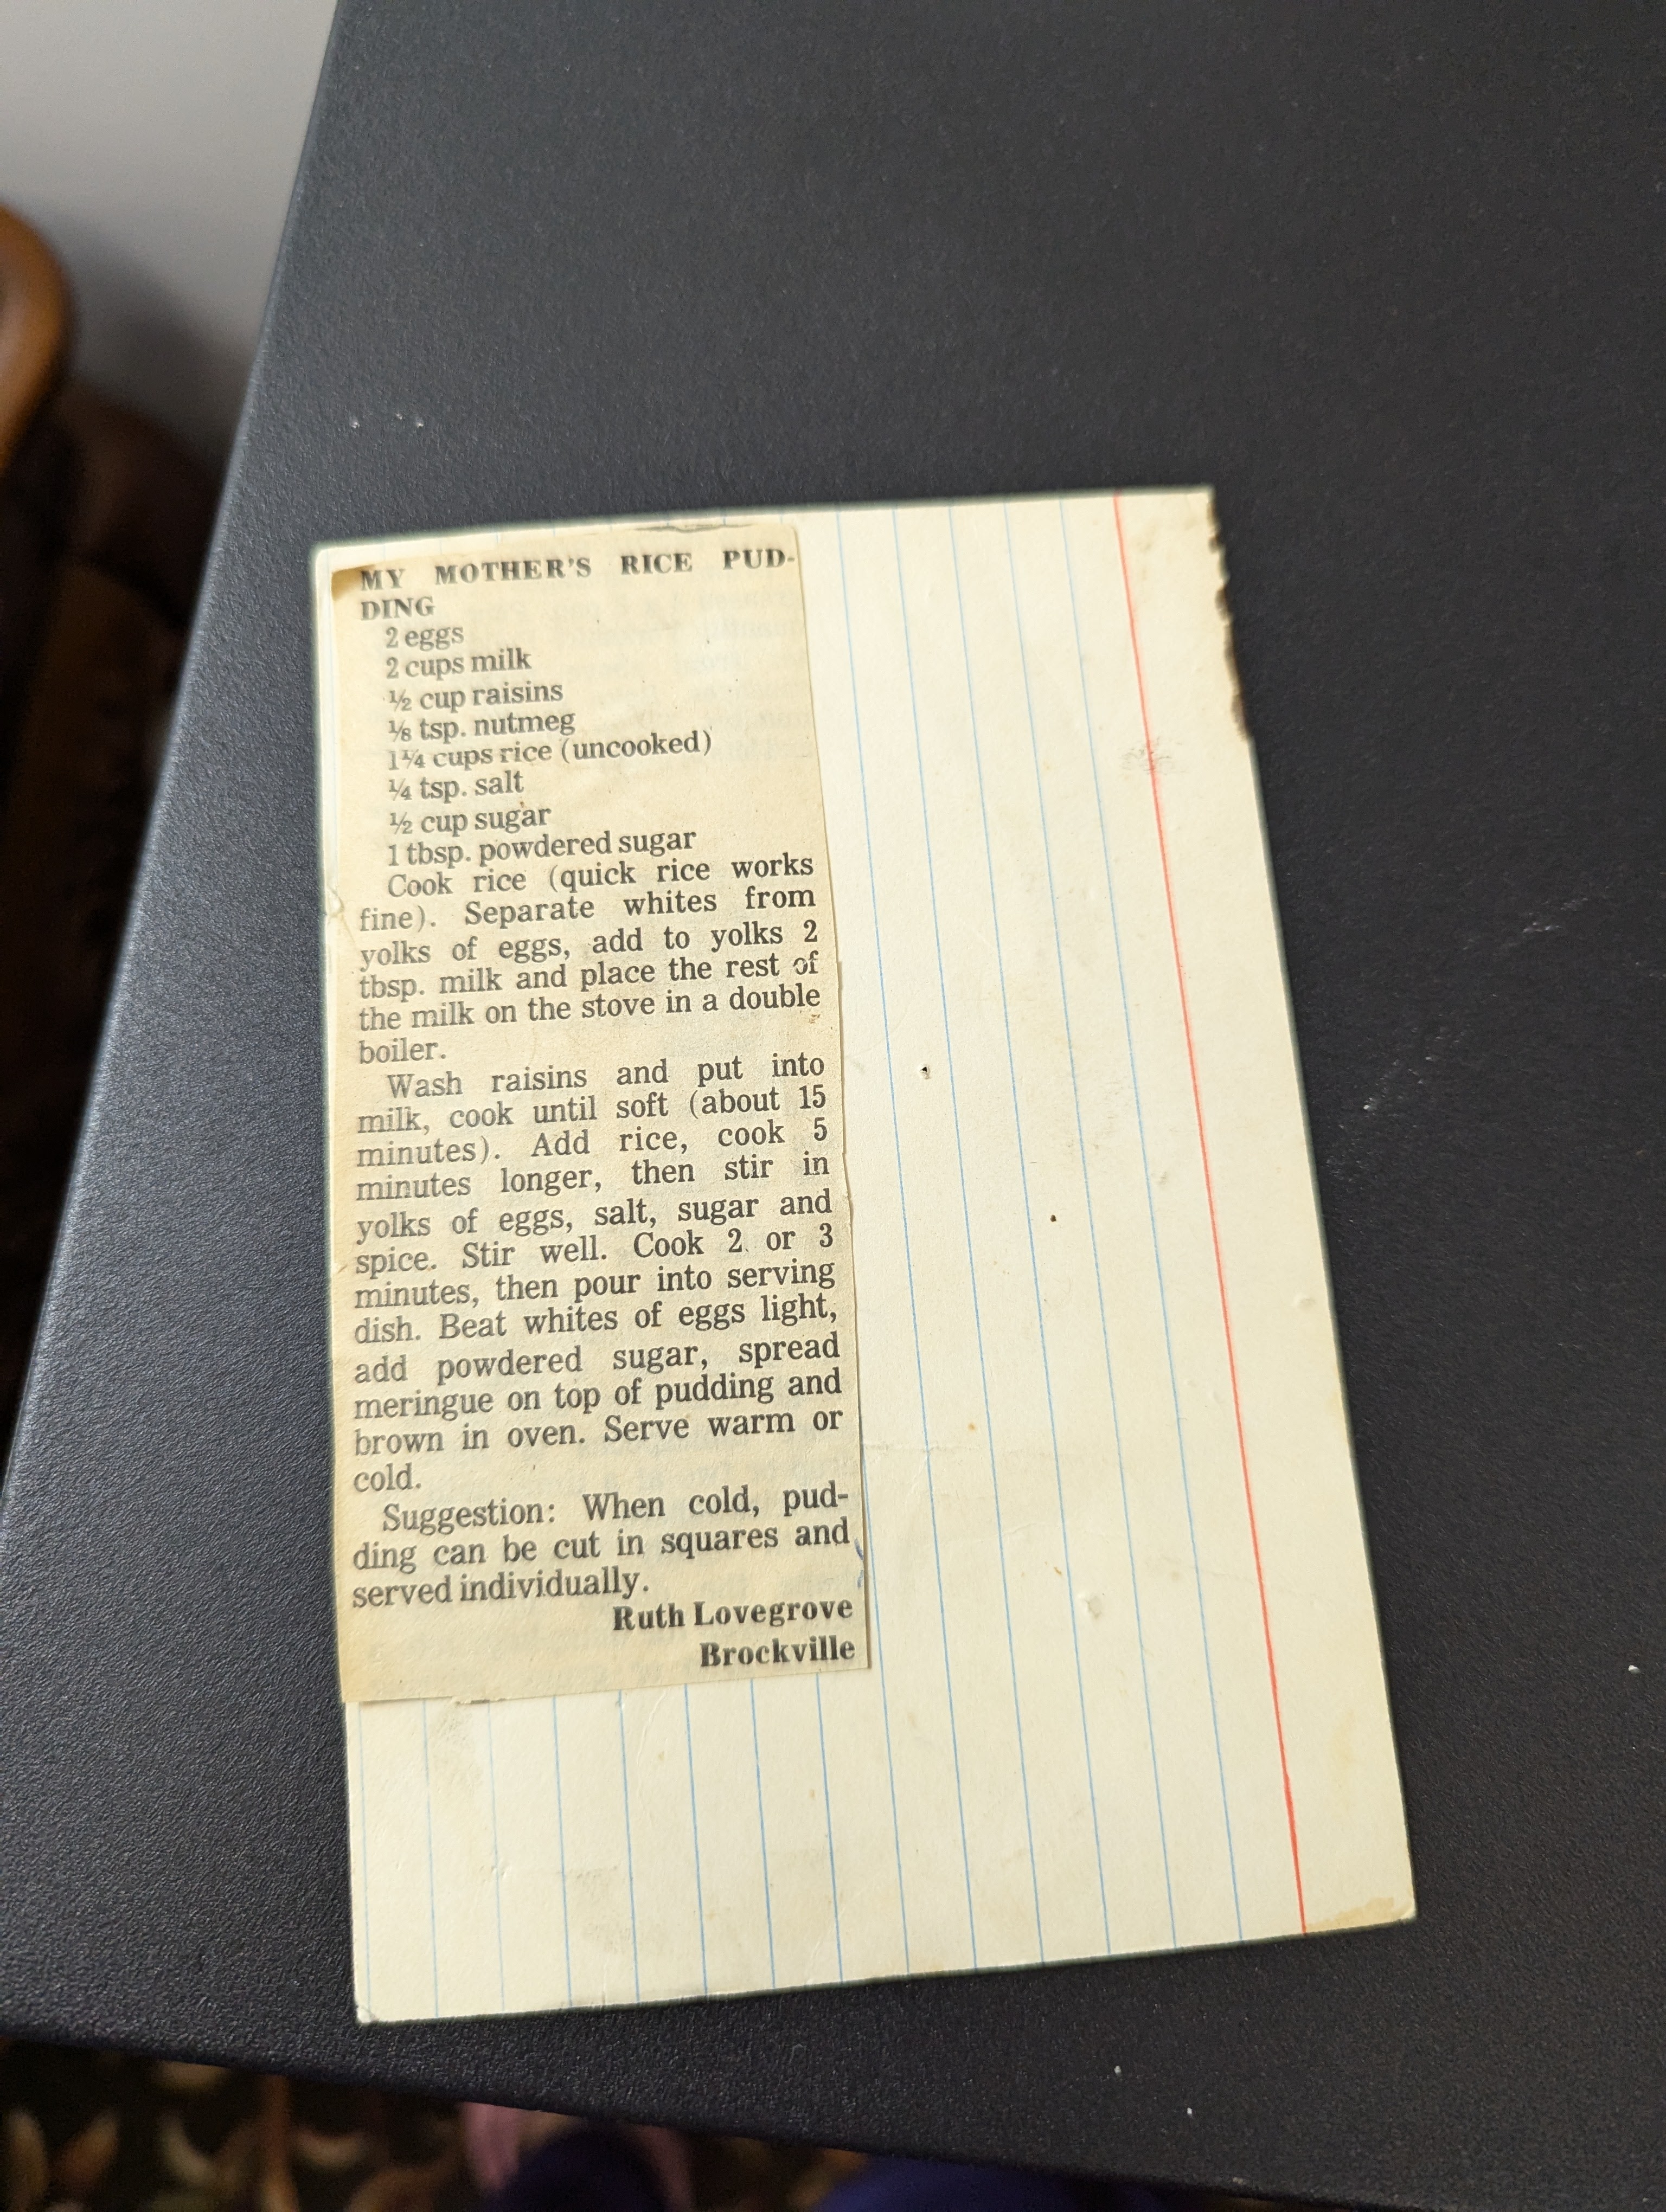 MY MOTHER'S RICE PUD-
DING
2 eggs
2 cups milk
½ cup raisins
⅛ tsp. nutmeg
1¼ cups rice (uncooked)
¼ tsp. salt
½ cup sugar
1 tbsp. powdered sugar
Cook rice (quick rice works
fine). Separate whites from
yolks of eggs, add to yolks 2
tbsp. milk and place the rest of
the milk on the stove in a double
boiler.
Wash raisins and put into
milk, cook until soft (about 15
minutes). Add rice, cook 5
minutes longer, then stir in
yolks of eggs, salt, sugar and
spice. Stir well. Cook 2 or 3
minutes, then pour into serving
dish. Beat whites of eggs light,
add powdered sugar, spread
meringue on top of pudding and
brown in oven. Serve warm or
cold.
Suggestion: When cold, pud-
ding can be cut in squares and
served individually.
Ruth Lovegrove
Brockville